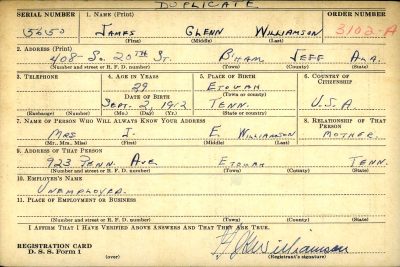 DUPLICATE
SERIAL NUMBER 1. NAME (Print) ORDER NUMBER
JAMES GLENN WILLIAMSON 3102-A
(First) (Middle) (Last)
2. ADDRESS (Print)
408 So. 20TH ST. B'HAM, JEFF ALA.
(Number and street or R. F. D. number) (Town) (County) (State)
3. TELEPHONE 4. AGE IN YEARS 5. PLACE OF BIRTH 6. COUNTRY OF CITIZENSHIP
29 ETOWAH
DATE OF BIRTH (Town or county)
SEPT. 2, 1912 TENN. U.S.A
(Exchange) (Number) (Mo.) (Day) (Yr.) (State or country)
7. NAME OF PERSON WHO WILL ALWAYS KNOW YOUR ADDRESS 8. RELATIONSHIP OF THAT PERSON
MRS J. E. WILLIAMSON MOTHER
(Mr., Mrs., Miss) (First) (Middle) (Last)
9. ADDRESS OF THAT PERSON
923 PENN. AVE ETOWAH TENN.
(Number and street or R. F. D. number) (Town) (County) (State)
10. EMPLOYER'S NAME
UNEMPLOYED
11. PLACE OF EMPLOYMENT OR BUSINESS
(Number and street or R. F. D. number) (Town) (County) (State)
I AFFIRM THAT I HAVE VERIFIED ABOVE ANSWERS AND THAT THEY ARE TRUE.
REGISTRATION CARD
D. S. S. Form 1 (over) Williamson
(Registrant's signature)